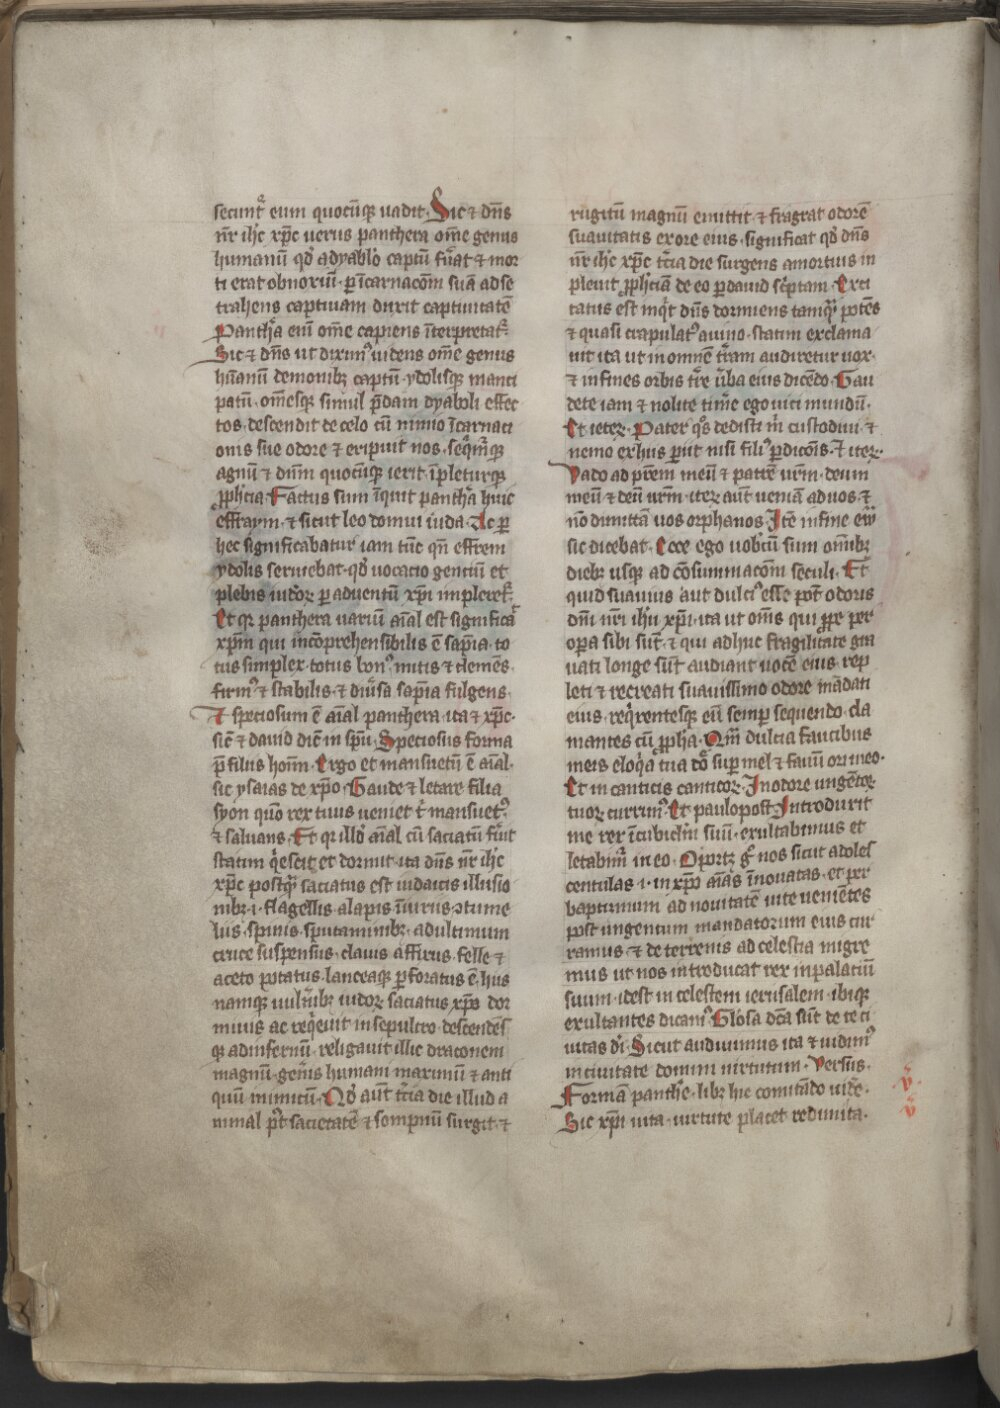 secunt᷑ eum quocūqꝫ uadit. Sic ⁊ dn̄s
nr̄ ihc̄ xp̄c uerus panthera om̄e genus
humanū qd̓ adyablo captū fu̓at ⁊ mor
ti erat obnoxiū. ꝑ īcarnacōm suā ad se
trahens captiuam duxit captiuitatē
Panth̓a eni om̄e capiens īterpretat᷑.
Sic ⁊ dn̄s ut diximꝰ uidens om̄e genus
hūanū demonibꝫ captū. ydolisqꝫ manci
patū. om̄esqꝫ simul p̄dam dyaboli effec
tos. descendit de celo cū nimio īcarnati
onis sue odore ⁊ eripuit nos. seq̄m̄qꝫ
agnū ⁊ diuin̄ quocūqꝫ ierit. īpleturqꝫ
ꝓph̓cia. Factus sum īquit panth̓a huic
effraym. ⁊ sicut leo domui iuda. Ac ꝑ
hec significabatur iam tūc qn̄ effrem
ydolis seruiebat. qd̓ uocacio gencium et
plebis iudeoꝝ ꝑ aduentū xp̄i impleret᷑.
Et qꝛ panthera uariū aīal est significa
xp̄m qui incōprehensibilis ē sap̄ia. to
tus simplex. totus bonꝰ. mitis ⁊ clemēs.
firmꝰ ⁊ stabilis. ⁊ diu̓sa sap̄ia fulgens.
Et speciosum ē aīal panthera. ita ⁊ xp̄c.
sic̄ ⁊ dauid dic̄ in sp̄u. Speciosus forma
p̄ filiis hom̄. Ergo et mansuetū ē aīal.
sic ysaias de xp̄o. Gaude ⁊ letare filia
syon quō rex tuus ueniet t̓ mansuetꝰ.
⁊ saluans. Et qꝛ illd̓ aīal cū saciatū fu̓it
statim q̓escit et dormit. ita dn̄s nr̄ ihc̄
xp̄c postq̄ saciatus est iudaicis illusio
nibꝫ. i. flagellis alapis īiuriis. ↄtume
liis. spinis. sputaminibꝫ. ad ultimum
cruce suspensus. clauis affixus. felle ⁊
aceto potatus. lanceaqꝫ ꝑforatus ē. hiis
namqꝫ uuln̓ibꝫ iudeoꝝ saciatus xp̄o dor
miuis ac req̓euit in sepulcro. descendēs
qꝫ ad infernū. religauit illic draconem
magnū. gen̓is humani maximū ⁊ anti
quū inimicū. Qd̓ aūt t̓cia die illud a
nimal p̓t sacietatē ⁊ sompniū surgit. ⁊
rugitū magnū emittit. ⁊ fragrat odorē
suauitatis ex ore eius. significat qd̓ dn̄s
nr̄ ihc̄ xp̄c t̓cia die surgens amortuis in
pleuit ꝓph̓ciam de eo ꝑ dauid sc̓ptam. Exci
tatus est inqͥt dn̄s dormiens tamq̄ potēs
⁊ quasi crapulatꝰ auino. statim exclama
uit ita ut in omnē t̓ram audiretur uox.
⁊ in fines orbis t̓re u̓ba eius dicēdo. Gau
dete iam ⁊ nolite tim̓e ego uici mundū.
Et iteꝝ. Pater qͦs dedisti m̄ custodiui. ⁊
nemo ex hiis ꝑiit nisi filiꝰ ꝑdicōis. Et iteꝝ.
Vado ad pr̄em meū ⁊ patrē ur̄m. deum
meū ⁊ deū ur̄m. iteꝝ aūt ueniā ad uos. ⁊
nō dimittā uos orphanos. Itē in fine ew̄
sic dicebat. Ecce ego uobcū sum om̄ibꝫ
diebꝫ usqꝫ ad cōsummacōm seculi. Et
quid suauius aut dulciꝰ esse pot̄ odoris
dn̄i nr̄i ihū xp̄i. ita ut om̄is qui ꝓpe per
oꝑa sibi sūt. ⁊ qui adhuc fragilitate gra
uati longe sūt audiant uocē eius. rep
leti ⁊ recreati suauissimo odore mādati
eius. req̓rentesqꝫ eū semꝑ sequendo. cla
mantes cū ꝓpha. Qm̄ dulcia faucibus
meis eloq̓a tua dō suꝑ mel ⁊ fauū ori meo.
Et in canticis canticoꝝ. In odore ungētoꝝ
tuoꝝ currimꝰ. Et paulo post. Introduxit
me rex ī cubiclm̄ suū. exultabimus et
letabim̄ in eo. Oportꝫ gͦ nos sicut adoles
centulas .i. in xp̄o aīas īnouatas. et per
baptismum ad nouitatē uite uenietēs
post ungentum mandatorum eius cur
ramus. ⁊ de terrenis ad celestia migre
mus ut nos introducat rex in palatiū
suum. idest in celestem ierusalem. ibiqꝫ
exultantes dicamꝰ. Glōsa dc̄a sūt de te ci
uitas di̓. Sicut audiuimus ita ⁊ uidimꝰ
in ciuitate domini uirtutum. Versus.
Formā panth̓e. libꝫ hic comitādo uid̓e.
Sic xp̄i uita. uirtute placet redimita.